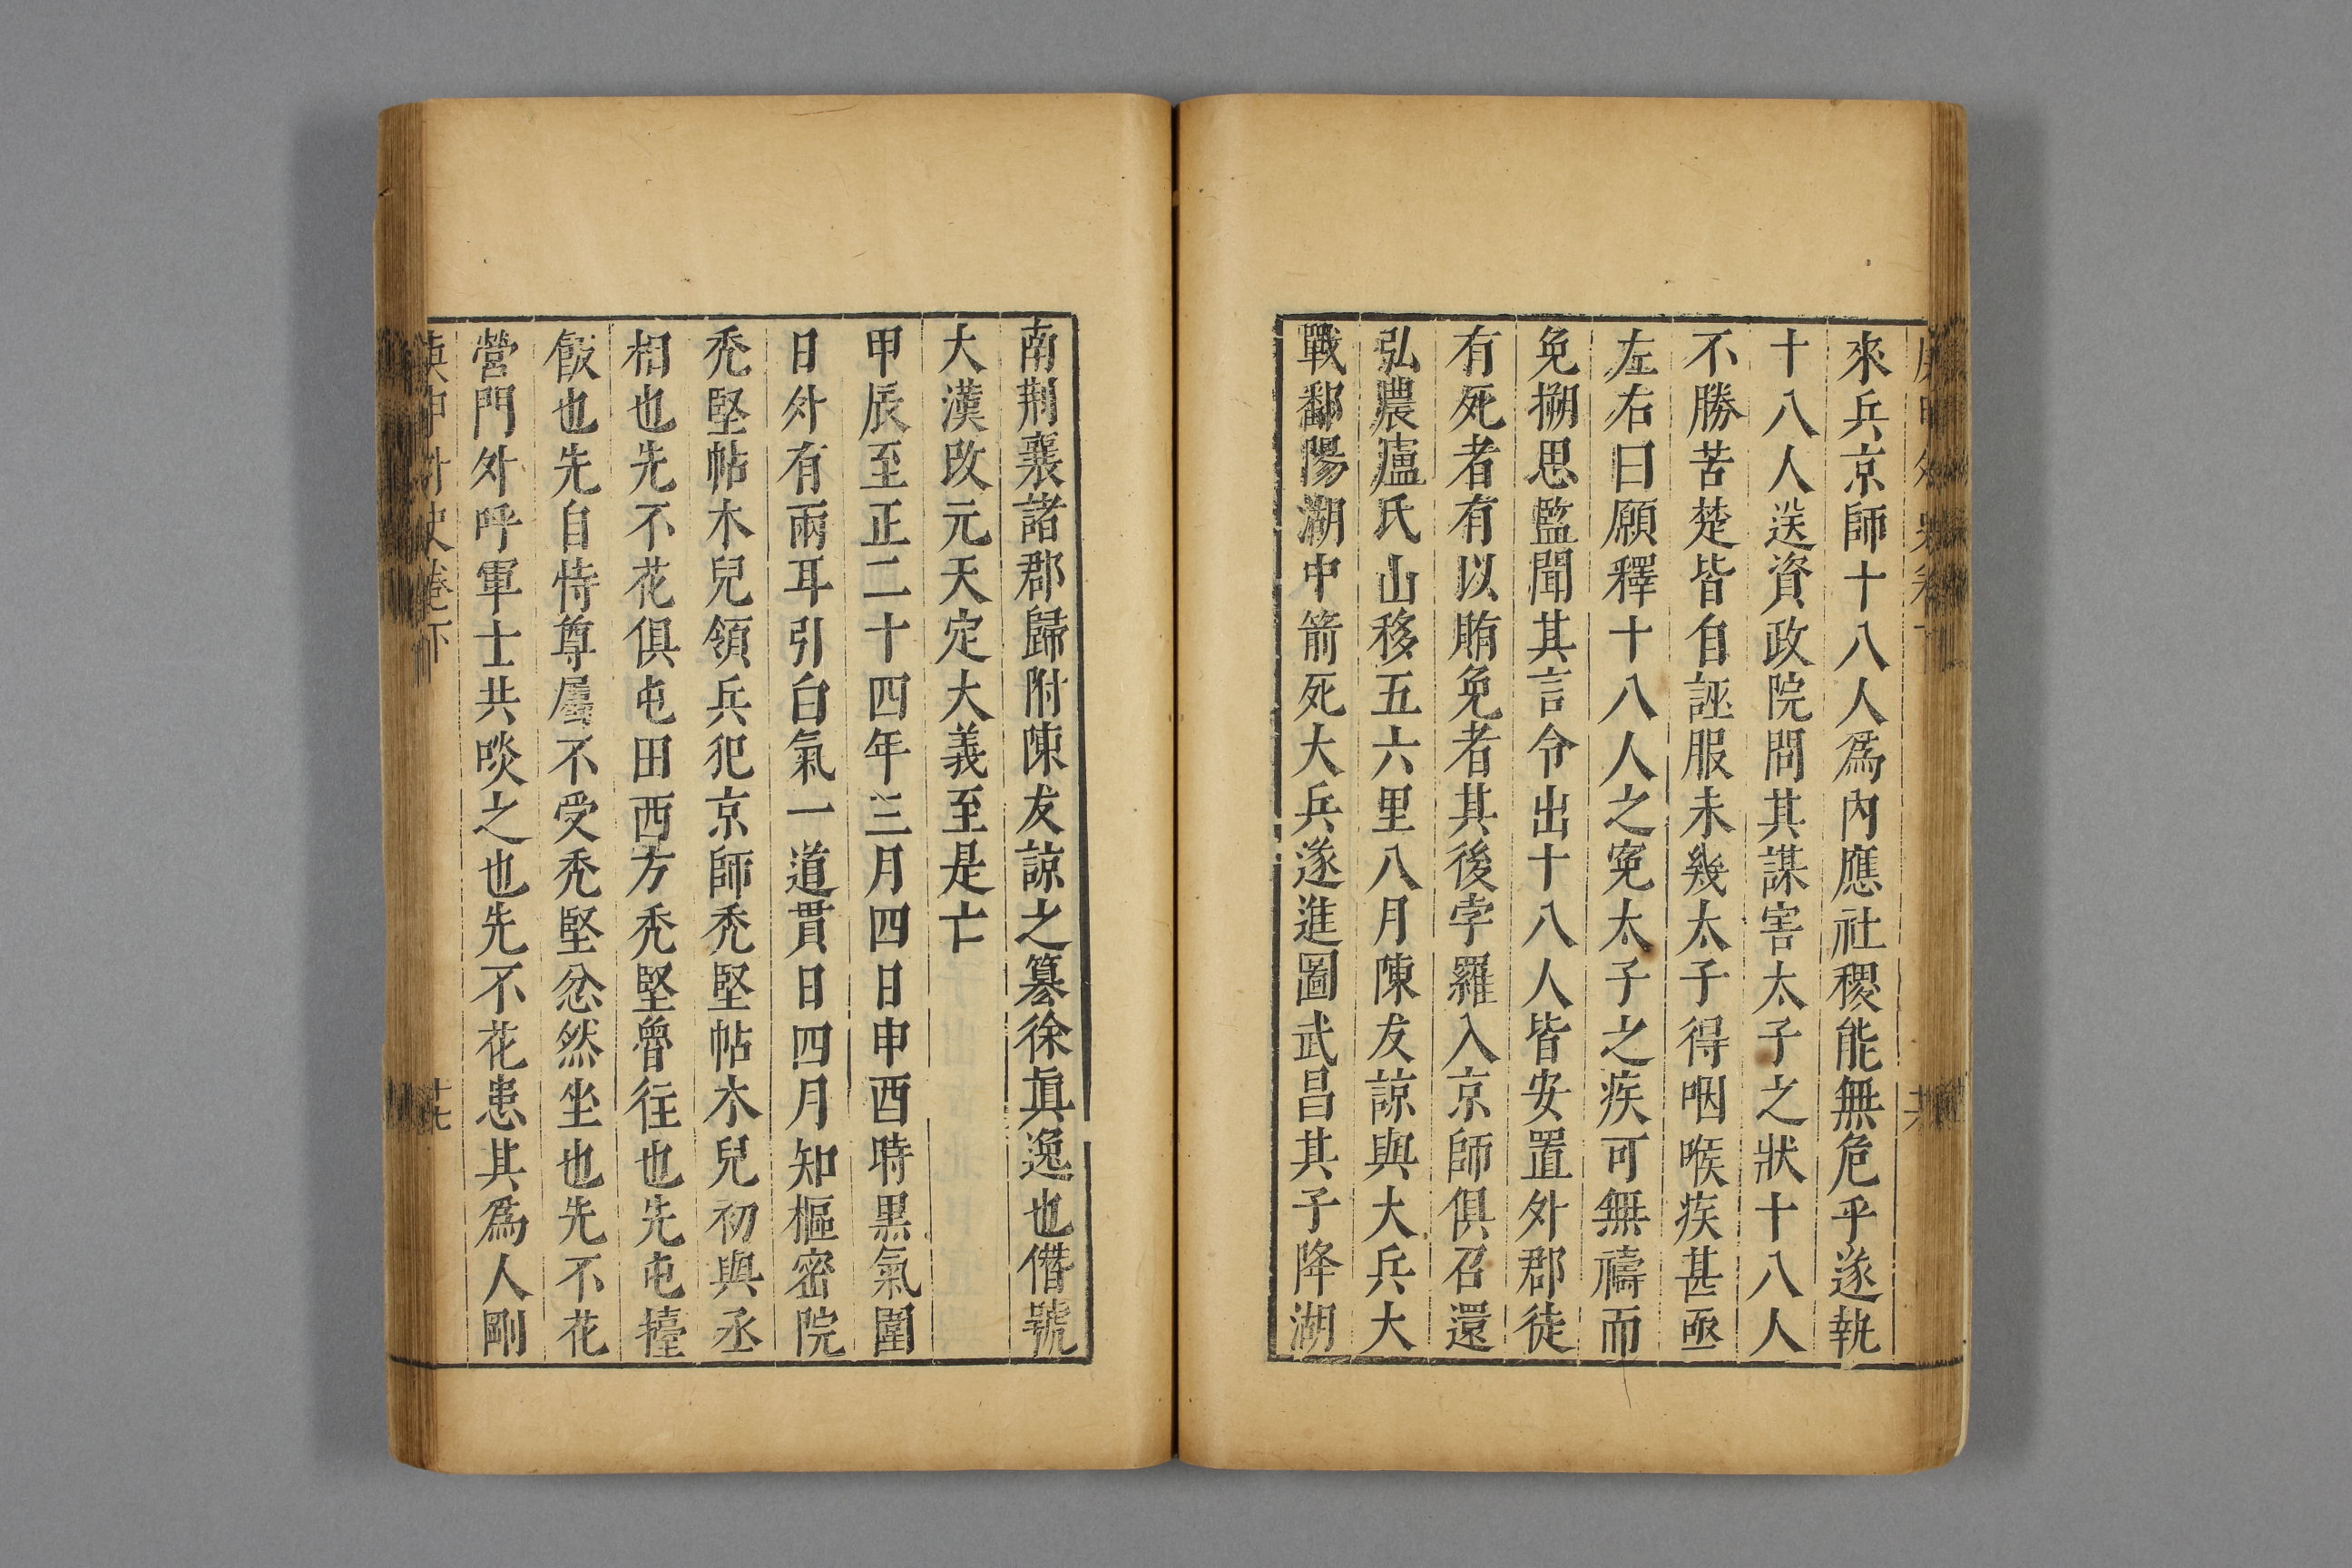 來兵京師十八人爲內應社稷能無危乎遂執
十八人送資政院問其謀害太子之狀十八人
不勝苦楚皆自誣服未幾太子得咽喉疾甚亟
左右曰願釋十八人之寃太子之疾可無禱而
免搠思監聞其言令出十八人皆安置外郡徒
有死者有以賄免者其後孛羅入京師俱召還
弘農廬氏山移五六里八月陳友諒與大兵大
戰鄱陽湖中箭死大兵遂進圖武昌其子降湖
南荆襄諸郡歸附陳友諒之簒徐眞逸也僭號
大漢改元天定大義至是亡
甲辰至正二十四年三月四日申酉時黑氣圍
日外有兩耳引白氣一道貫日四月知樞密院
禿堅帖木兒領兵犯京師禿堅帖木兒初與丞
相也先不花俱屯田西方禿堅曾往也先屯擡
飯也先自恃尊屬不受禿堅忿然坐也先不花
營門外呼軍士共啖之也先不花患其爲人剛
庚申外史卷下